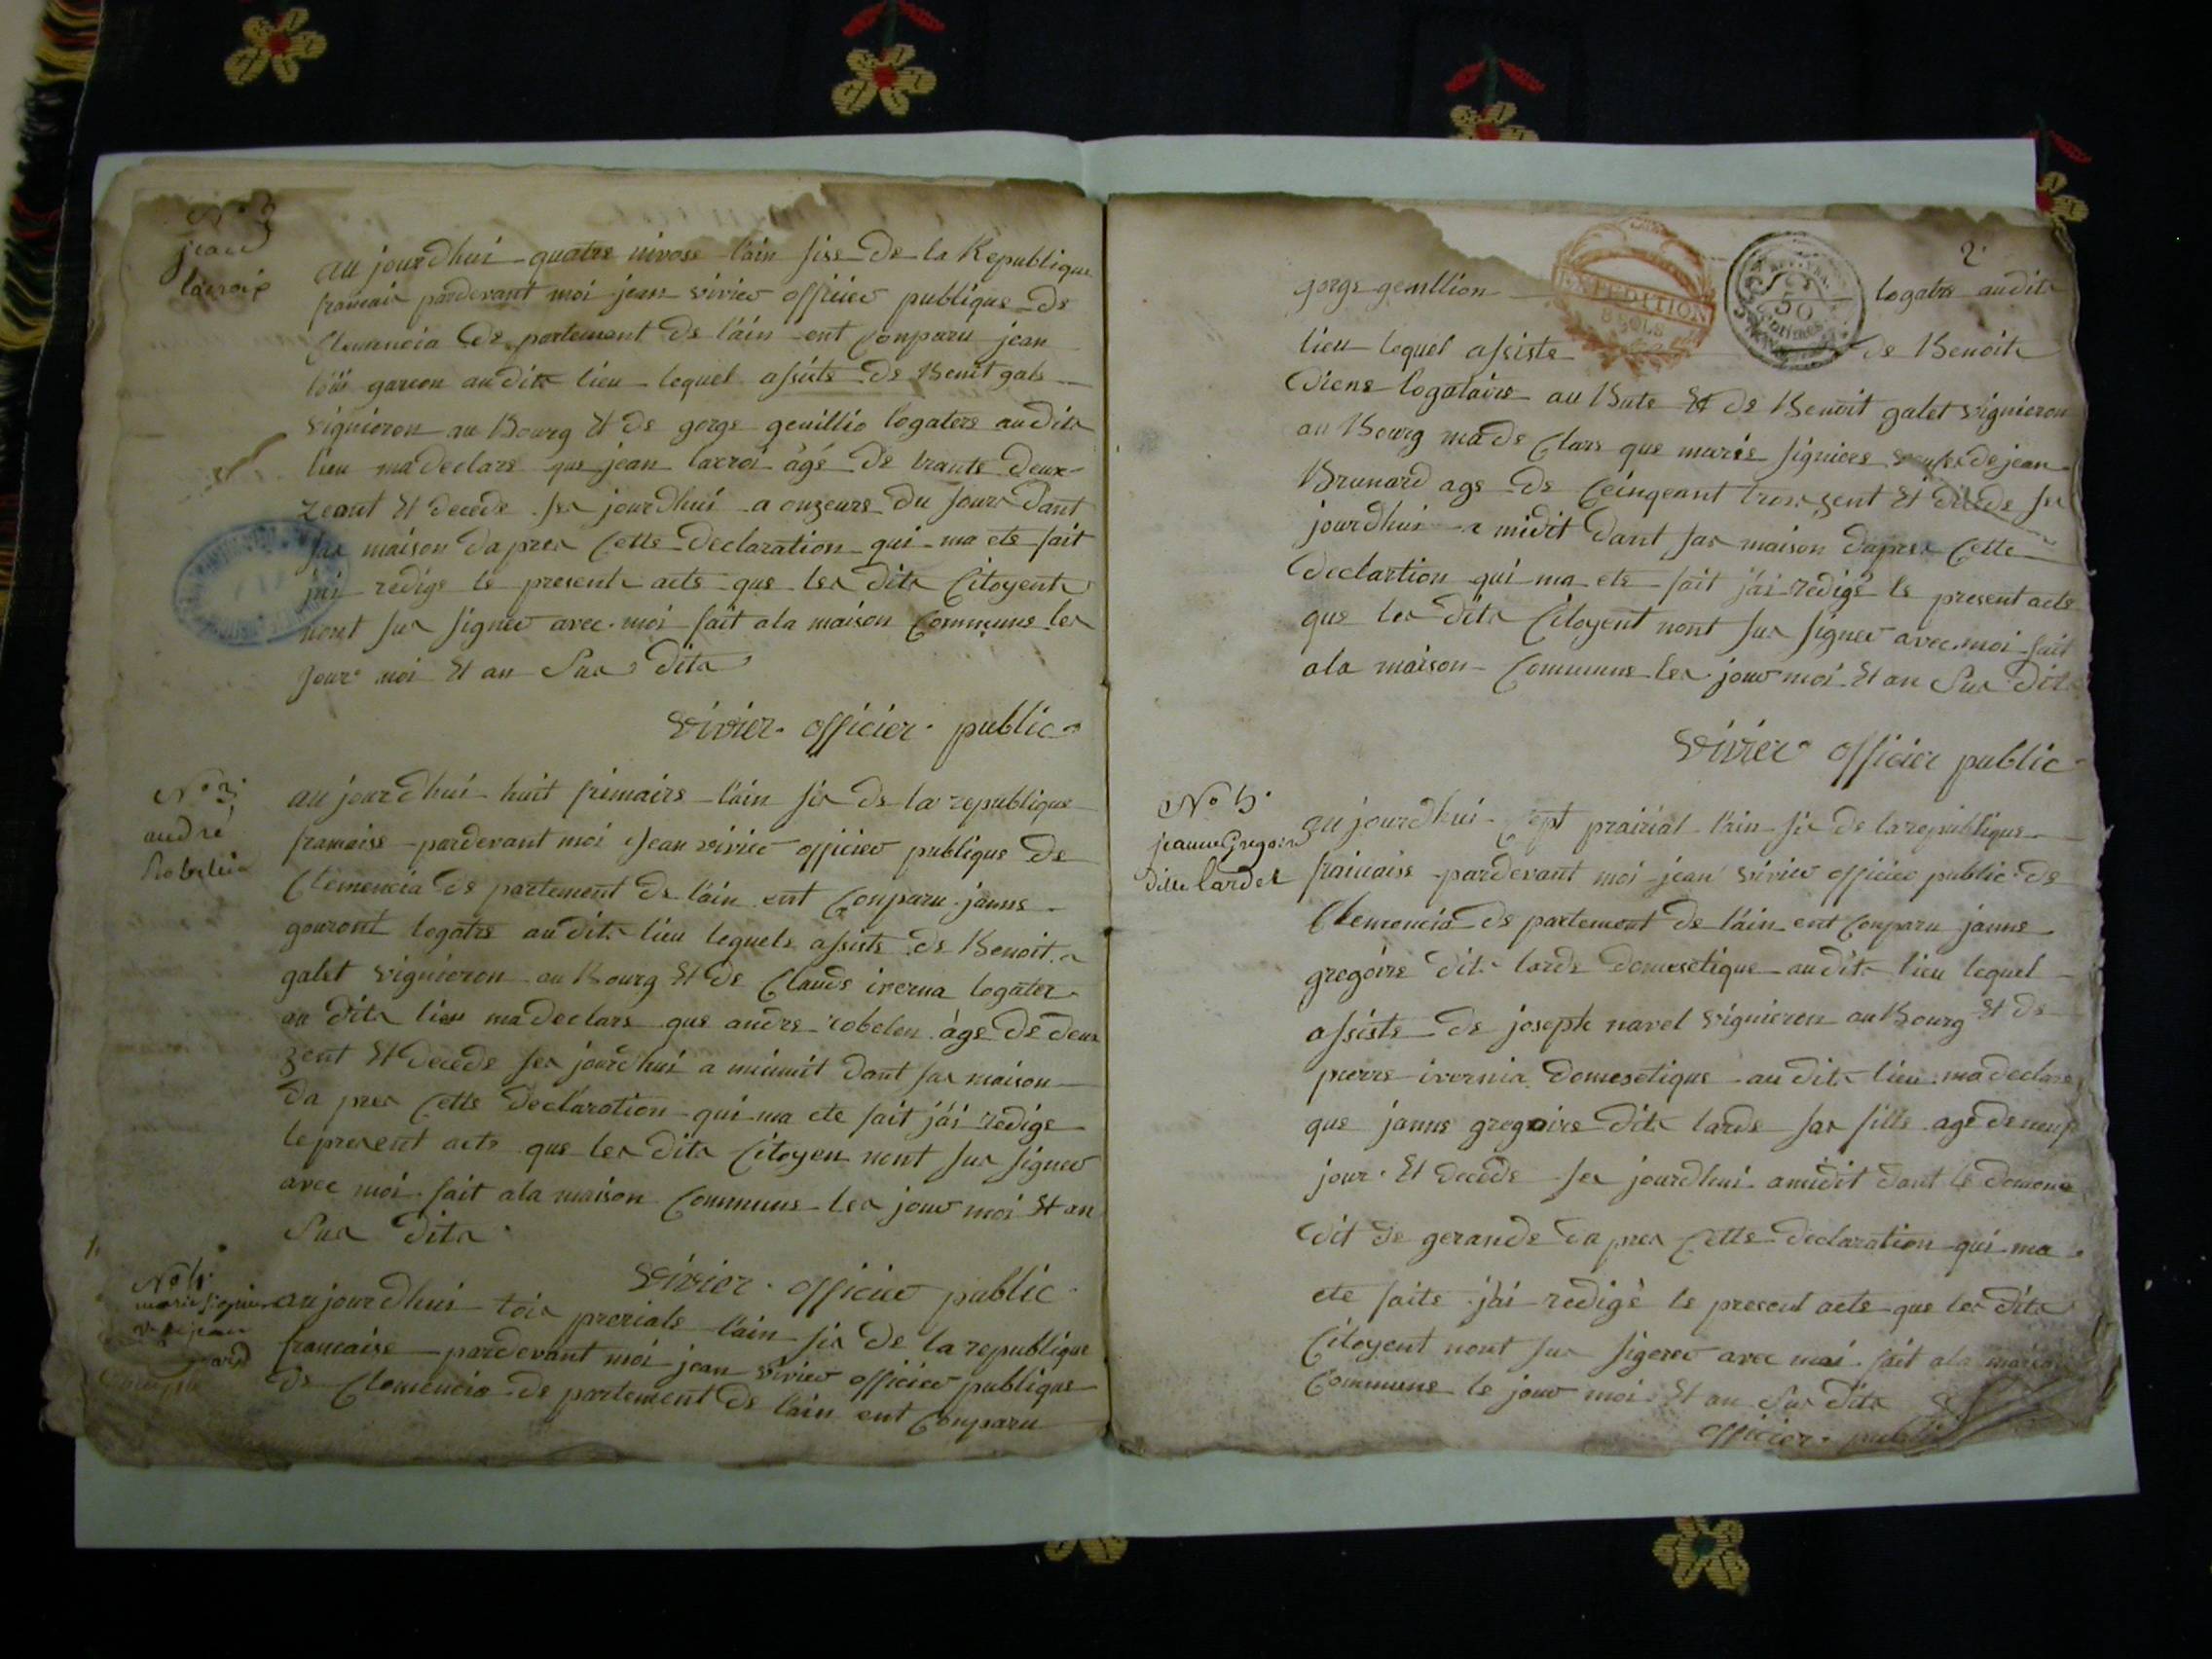 N° 2
jean
lacroix
au jourdhui quatre nivose lain sise de la Republique
francais pardevant moi jean vivier officier publique de
Clemencia de partement de lain ent Conparu jean
garcon au dita lieu lequel assiste de Benit gale
vignieron au Bourg Et de gorge genillio logatere au dita
lieu ma declare que jean lacroi àgé de trante deux
zeant Et decede ser jourdhui a onzeure du jour dant
sar maison dapres Cette declaration qui ma ete fait
jai redige le presente acte que les dita Citoyent
nont sur signer avec moi fait ala maison Commune les
jour moi Et an Sus dita
vivier officier public
N° 3
andré
Robelin
au jourdhui huit frimaire lain sis de la republique
francaise pardevant moi jean vivier officier publique de
Clemencia de partement de lain ent Conparu janne
gouront logatre au dita lieu lequele assiste de Benoit
galet vignieron au Bourg Et de Claude iverna logater
au dita lieu ma declare que andre robelen àge de deux
zent Et decede ser jourdhui a minuit dant sar maison
da pres Cette declaration qui ma ete fait jai redige
le present acte que les dita Citoyen nont sur signer
avec moi fait ala maison Commune les jour moi Et an
Sus dita
vivier officier public
N° 4
marie signiere
ve de jean
au jourdhui tois prerials lain sis de la republique
francaise pardevant moi jean vivier officier publique
de Clemencia de partement de lain ent Conparu
2
gorge genillion logatre au dita
EXPEDITION
8 SOLS
50
Centimes
lieu lequel assiste de Benoit
diens logataire au Bute Et de Benoit galet vignieron
au Bourg ma de Clare que marie signiere de jean
Brunard age de Ceingeant trois zent Et decede ser
jourdhui a midit dant sar maison dapres Cette
declartion qui ma ete fait jai redigé le present acte
que les dita Citoyent nont sur signer avec moi fait
ala maison Commune les jour moi Et an Sus dita
vivier officier public
N° 5
jeanne Gregoire
ditte lardet
au jourdhui sept prairial lain sis de la republique
fraicaise pardevant moi jean vivier officier public de
Clemencia de partement de lain ent Conparu janne
gregoire dita larde domesetique au dita lieu lequel
assiste de joseph navel vignieron au Bourg Et de
pierre ivernia domesetique au dita lieu ma declare
que janne gregoire dita larde sar fille age de neuf
jour Et decede ser jourdhui amidit dant le domene
dit de gerande da pres Cette declaration qui ma
ete faite jai redigé le present acte que les dita
Citoyent nont sur signer avec moi fait ala maison
Commune le jour moi Et an Sus dita
officier public